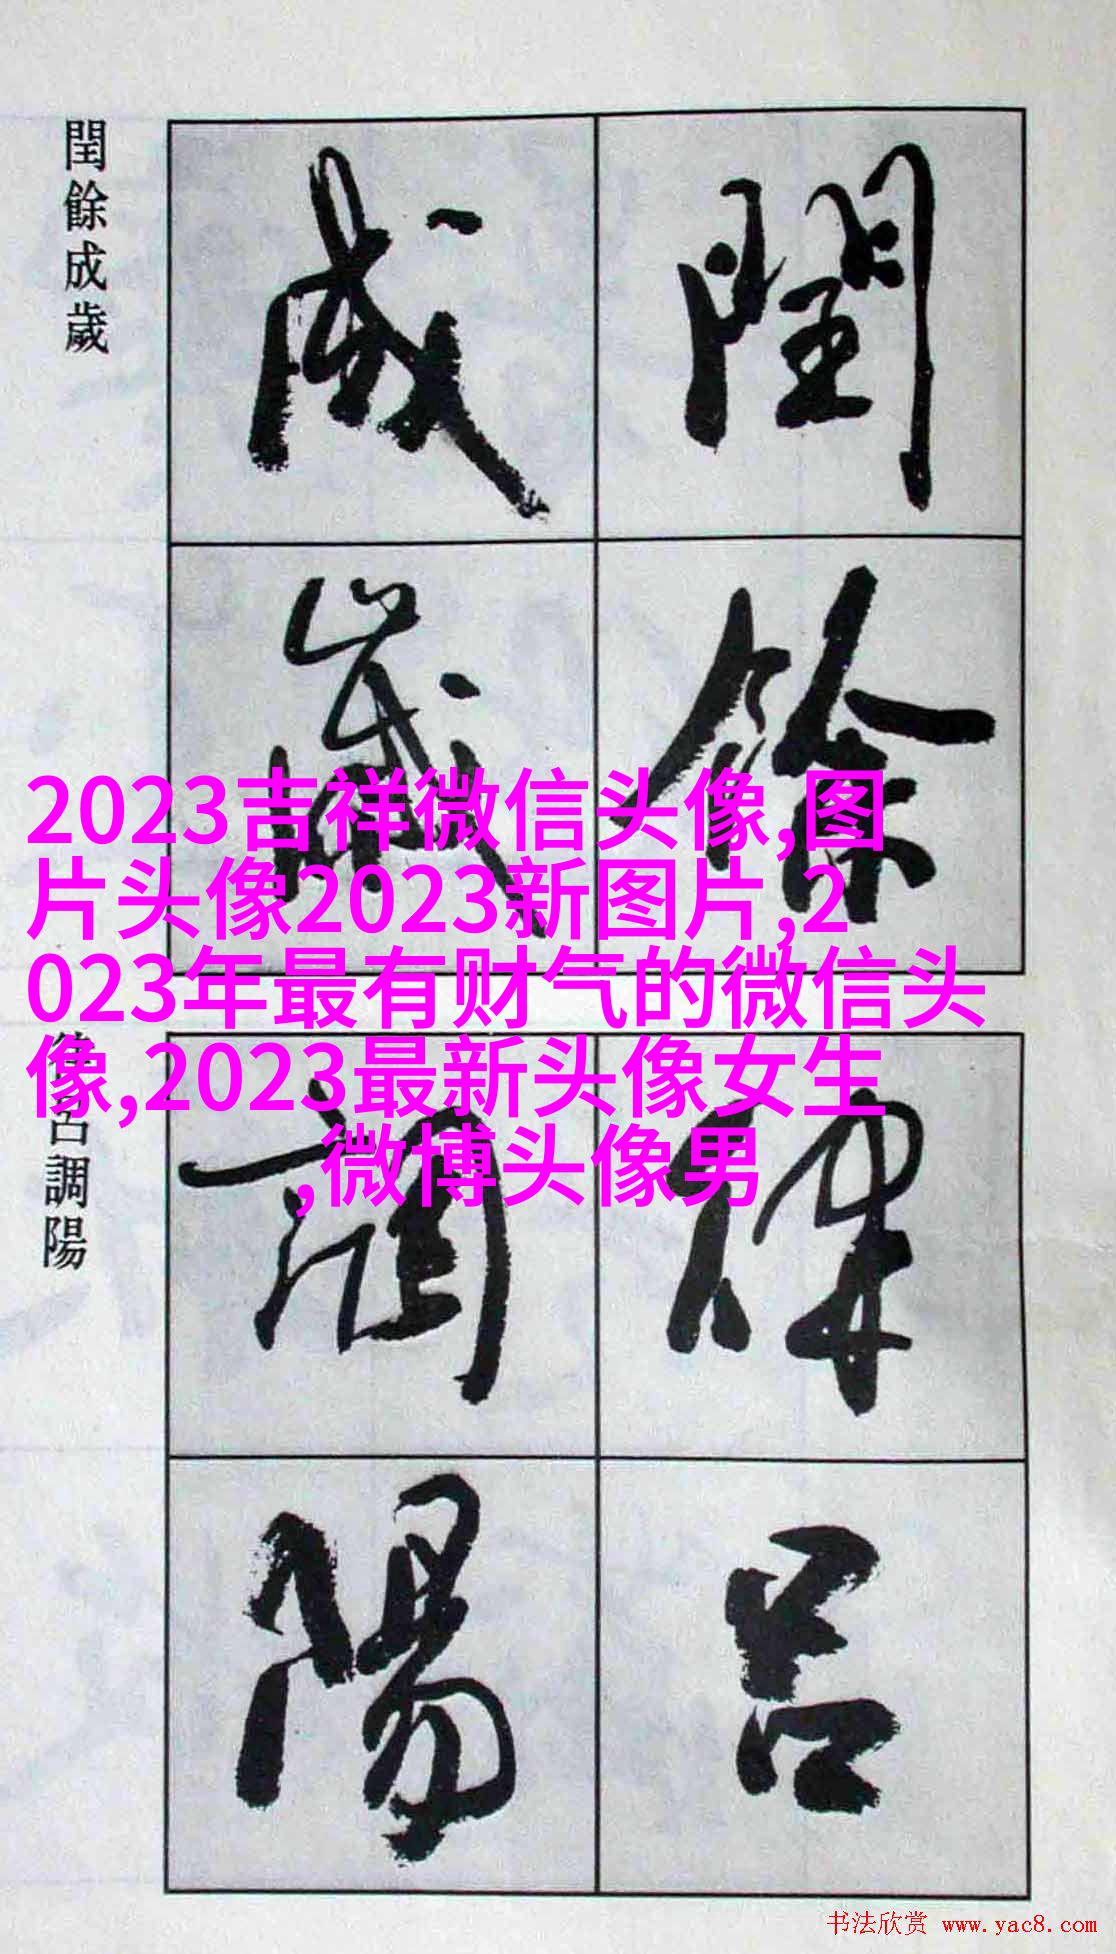 閏餘成歲
閏餘
成歲
2023吉祥微信头像,图
片头像2023新图片,2
023年最有财气的微信头
像,2023最新头像女生
,微博头像男
律呂調陽
律呂
調陽
书法欣赏 www.yac8.com